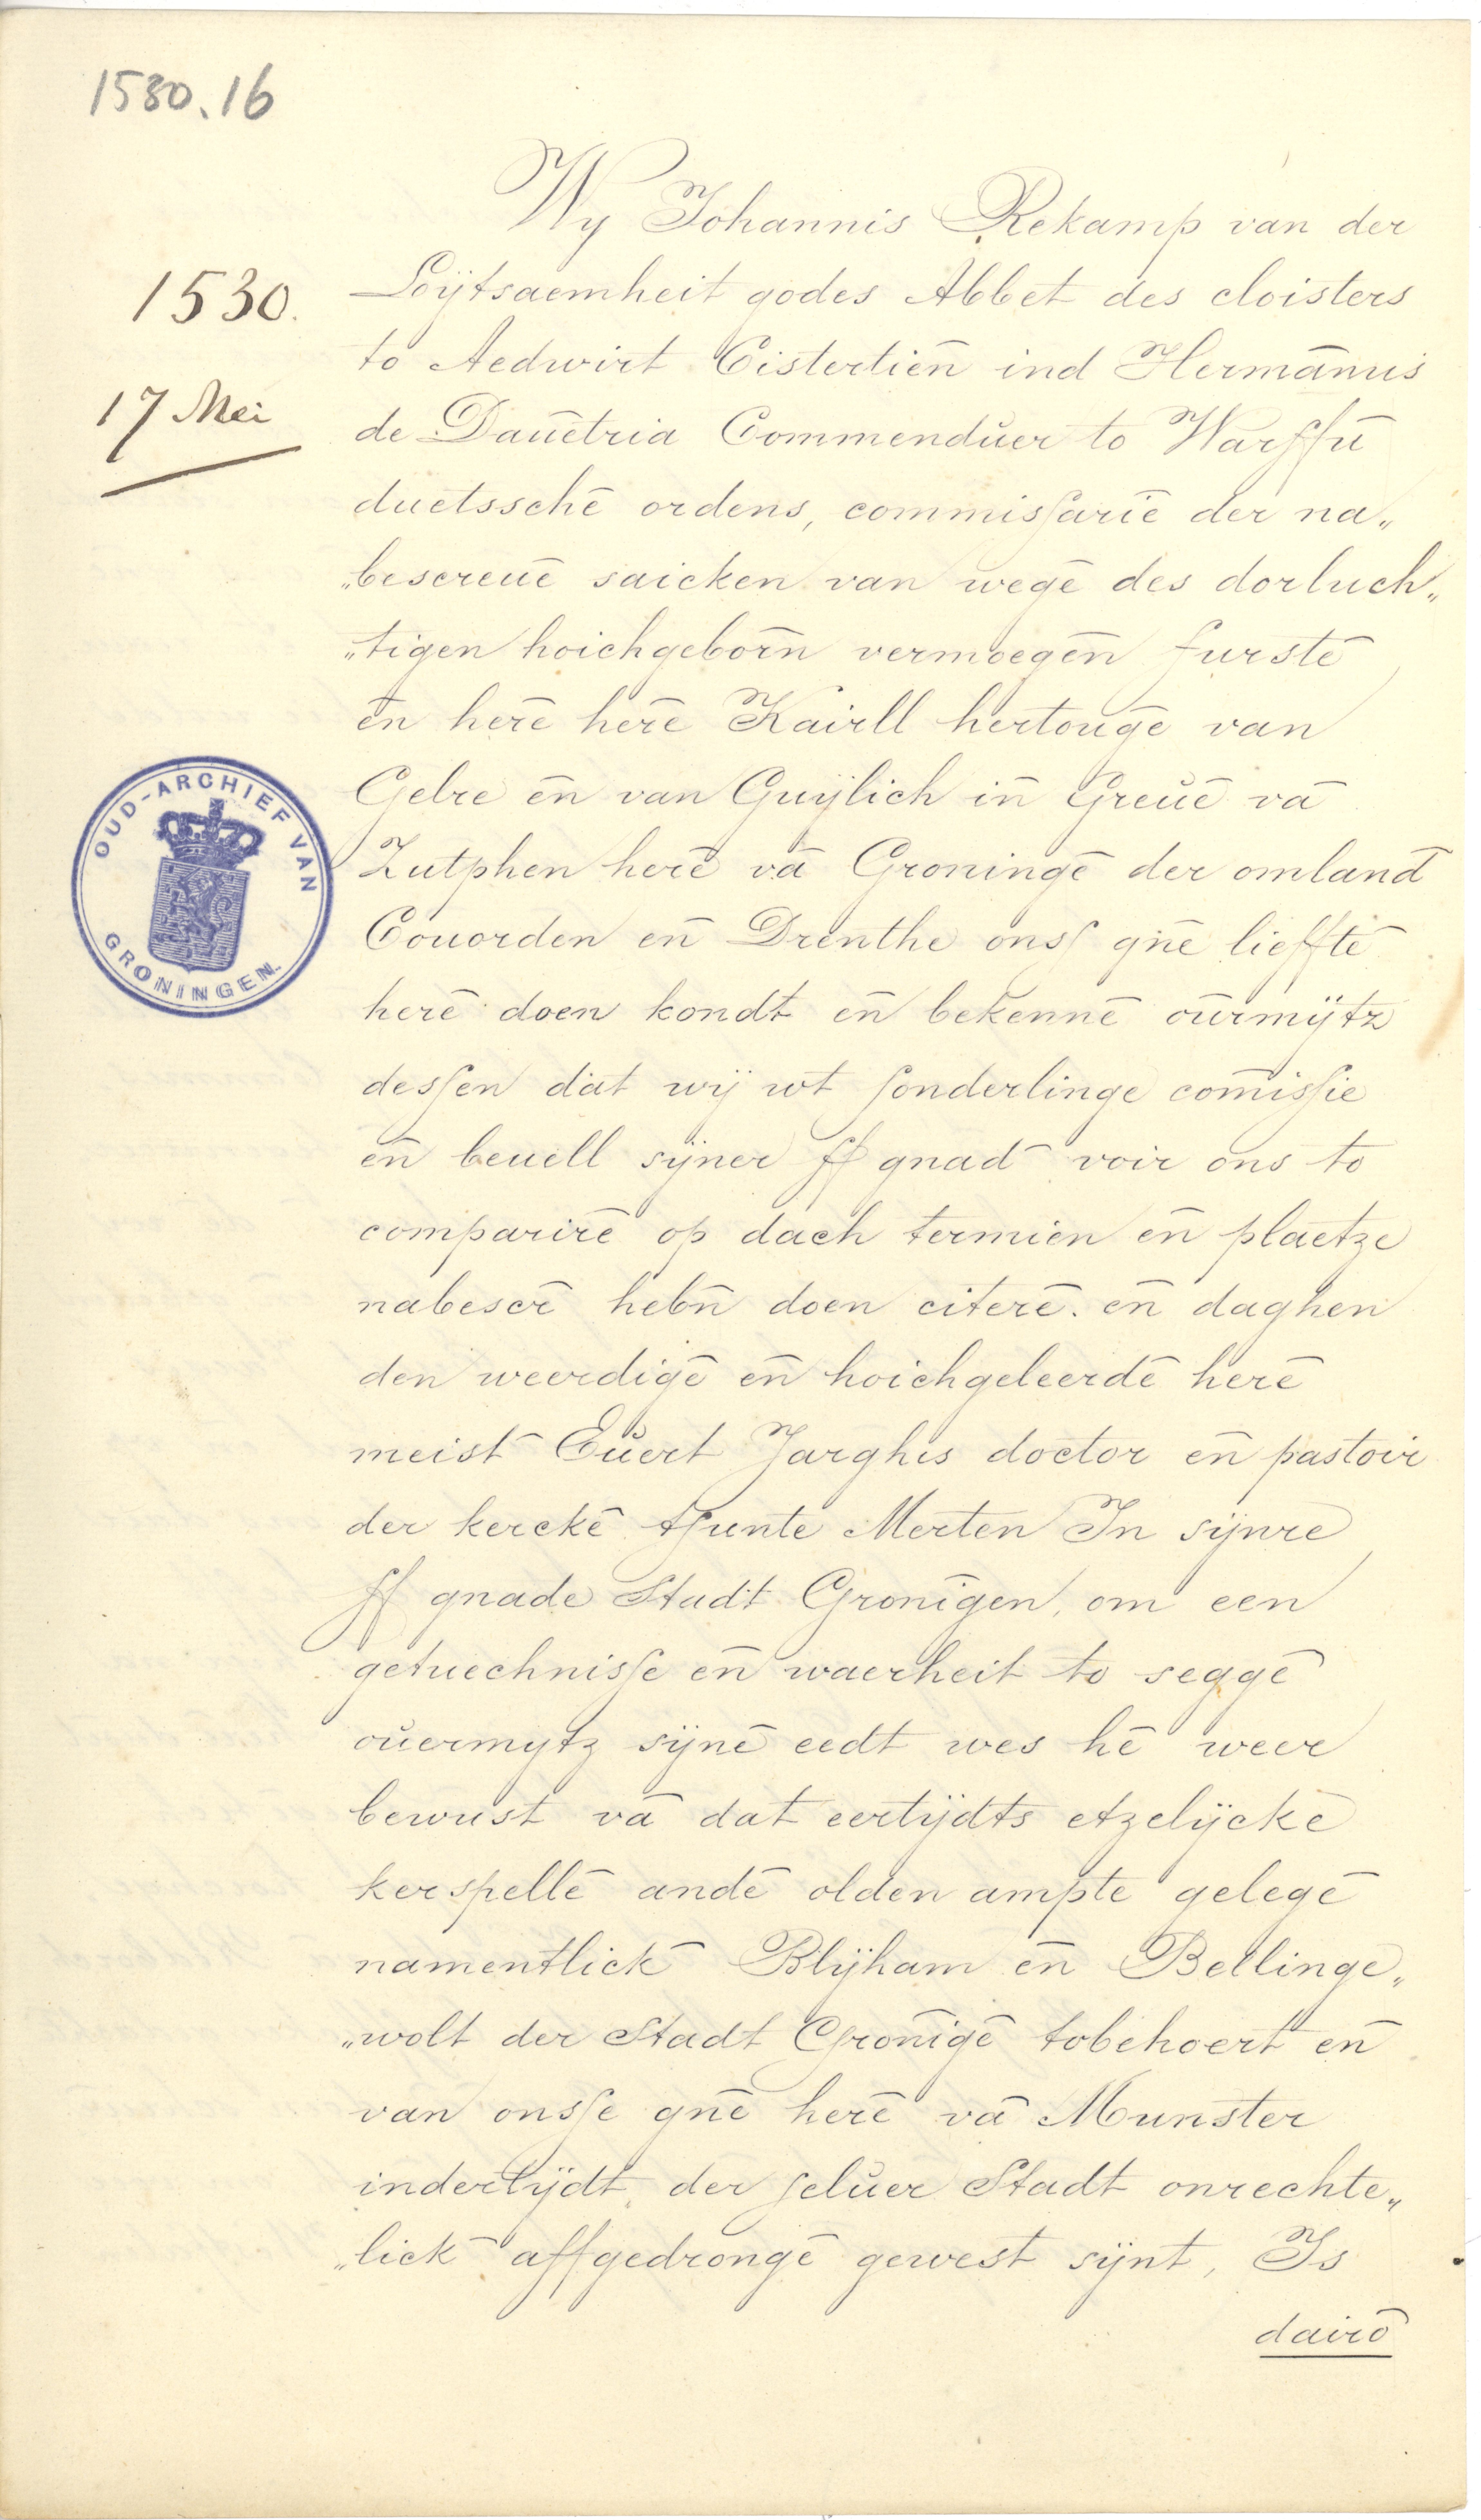 1530.16
1530.
17 Mei
OUD-ARCHIEF VAN
GRONINGEN.
Wy Johannis Rekamp van der
Loijtsaemheit godes Abbet des cloisters
to Aedwirt Cistertien̄ ind Hermān̄us
de Dauētria Commenduer to Warffū
duetsschē ordens, commissariē der na„
„bescreuē saicken van wegē des dorluch„
„tigen hoichgebor̄n vermoegēn furstē
en̄ herē herē Kairll hertougē van
Gelre en̄ van Guijlich in̄ Greuē vā
Zutphen herē vā Groningē der omland̄
Couorden en̄ Drenthe onss gn̄e liefftē
herē doen kondt en̄ bekennē ou̅rmijtz
dessen dat wij wt sonderlinge com̄issie
en̄ beuell sijner ff gnad̄ voir ons to
compararirē op dach termien en̄ plaetze
nabescr̄ hebn̄ doen citerē. en̄ daghen
den weerdigē en̄ hoichgeleerdē herē
meist̄ Euert Jarghis doctor en̄ pastoir
der kerckē tsunte Merten In sijnre
ff gnade Stadt Gronīgen, om een
getuechnisse en̄ waerheit to seggē
ouermytz sijnē eedt wes hē weer
bewust vā dat eertijdts etzelijckē
kerspellē andē olden ampte gelegē
namentlick̄ Blijham en̄ Bellinge„
„wolt der Stadt Gronīgē tobehoert en̄
van onsse gn̄e herē vā Munster
indertijdt, der seluer Stadt onrechte„
„lick̄ affgedrongē gewest sijnt, Is
dairō